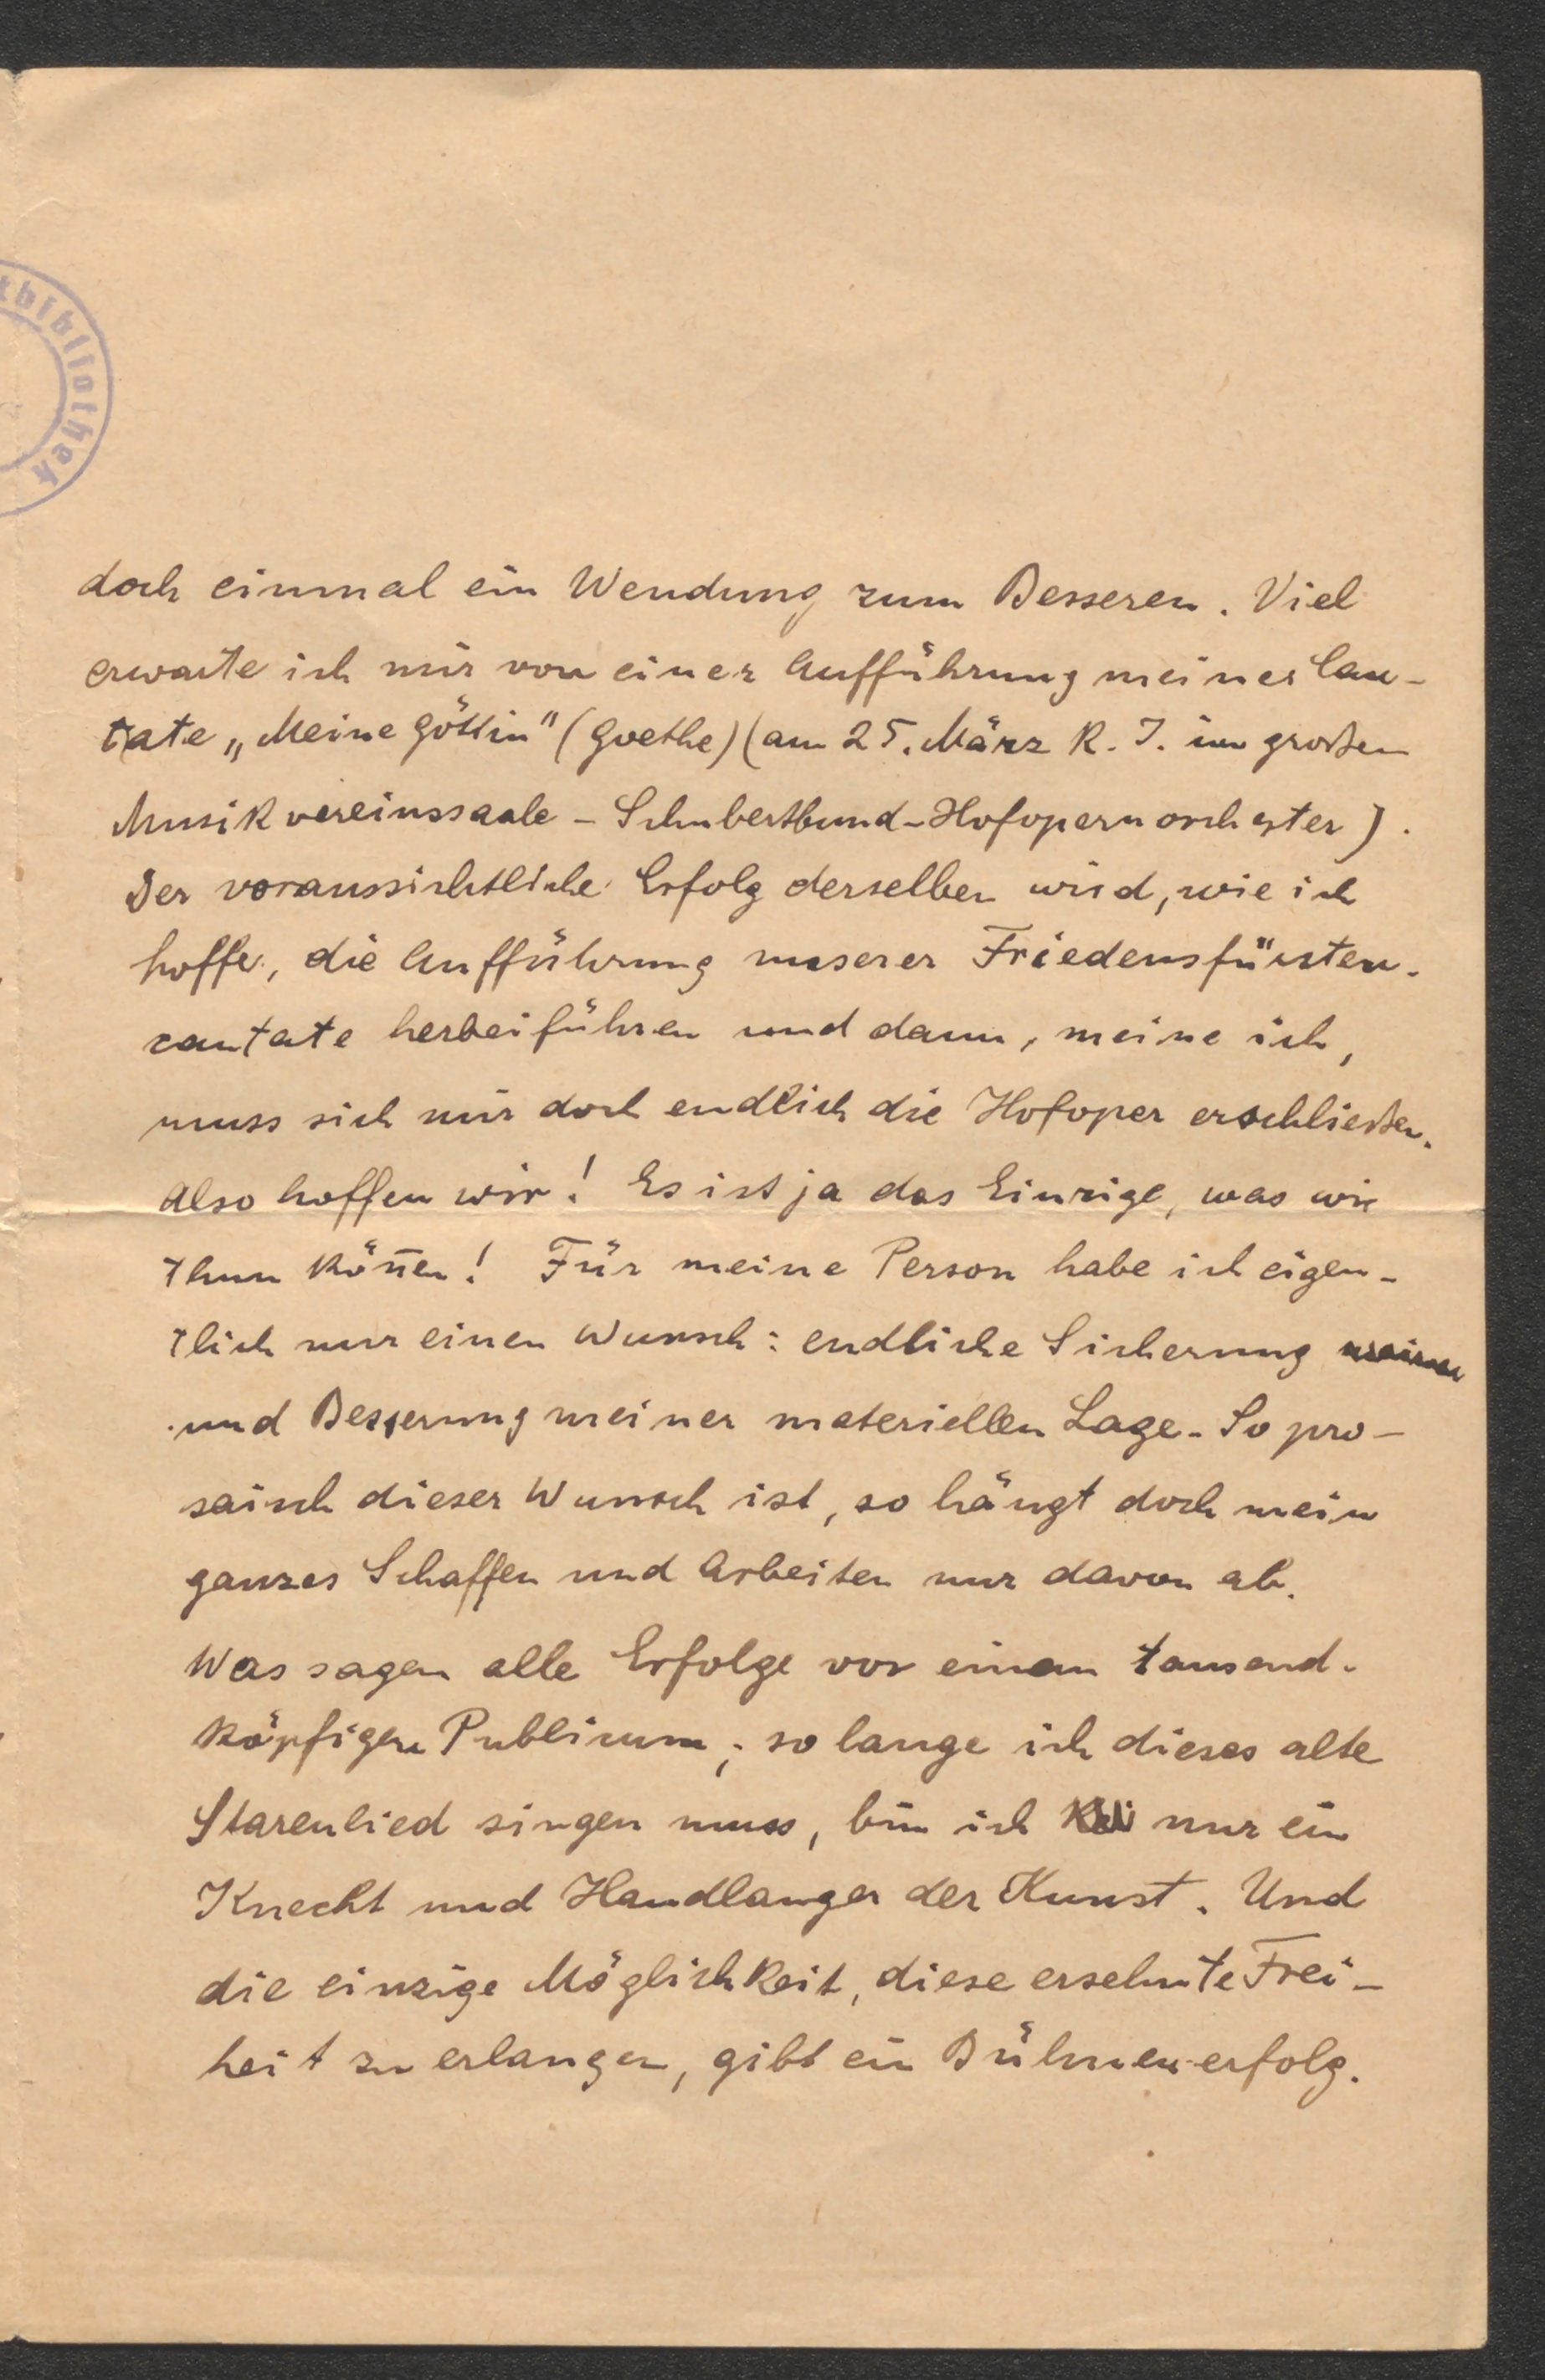 tbibliothek
doch einmal ein Wendung zum Besseren. Viel
erwarte ich mir von einer Aufführung meiner Can-
tate „Meine Göttin" (Goethe) (am 25. März k. J. im großen
Musikvereinssaale - Schubertbund-Hofopernorchester).
Der voraussichtliche Erfolg derselben wird, wie ich
hoffe, die Aufführung unserer Friedensfürsten-
cantate herbeiführen und dann, meine ich,
muss sich mir doch endlich die Hofoper erschließen.
Also hoffen wir! Es ist ja das Einzige, was wir
thun kön̄en! Für meine Person habe ich eigen-
tlich nur einen Wunsch: endliche Sicherung meiner
und Besserung meiner materiellen Lage. So pro-
saisch dieser Wunsch ist, so hängt doch mein
ganzes Schaffen und Arbeiten nur davon ab.
Was sagen alle Erfolge vor einem tausend-
köpfigen Publicum; so lange ich dieses alte
Starenlied singen muss, bin ich nur ein
Knecht und Handlanger der Kunst. Und
die einzige Möglichkeit, diese ersehnte Frei-
heit zu erlangen, gibt ein Bühnenerfolg.